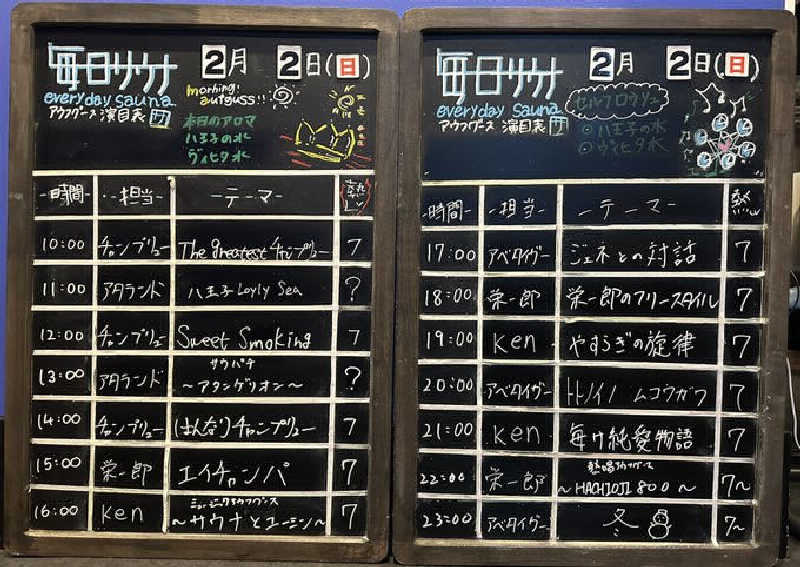 毎日サウナ 2月 2日(日)
everyday sauna
アウフグース 演目表
morning! autguss!!
本日のアロマ
八王子の水
ヴィヒタ水
-時間- -担当- -テーマ-
10:00 チャンプリュー The greatest チャンプリュー 7
11:00 アタランド 八王子 Loyly Sea ?
12:00 チャンプリュー Sweet Smoking 7
サウパチ
13:00 アタランド ～アタンゲリオン～ ?
14:00 チャンプリュー はんなりチャンプリュー 7
15:00 栄一郎 エイチャンパ 7
ミュージックアウフグース
16:00 ken ～サウナとエーミン～ 7
毎日サウナ 2月 2日(日)
everyday sauna
アウフグース 演目表
セルフロウリュ
八王子の水
ヴィヒタ水
-時間- -担当- -テーマ-
17:00 アベタイガー ジェネとの対話 7
18:00 栄一郎 栄一郎のフリースタイル 7
19:00 ken やすらぎの旋律 7
20:00 アベタイガー トトノイノ ムコウガワ 7
21:00 ken 毎け純愛物語 7
22:00 栄一郎 ～HACHIOJI 800～ 7～
23:00 アベタイガー 冬 7～